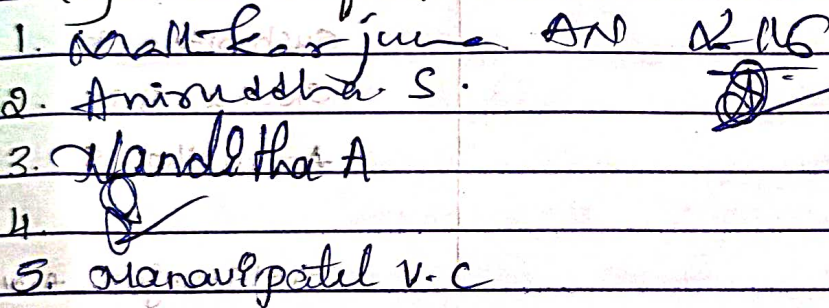 1. Mallikarjuna AN
2. Aniruddha S.
3. Nanditha A
4.
5. Manavi patil V.C